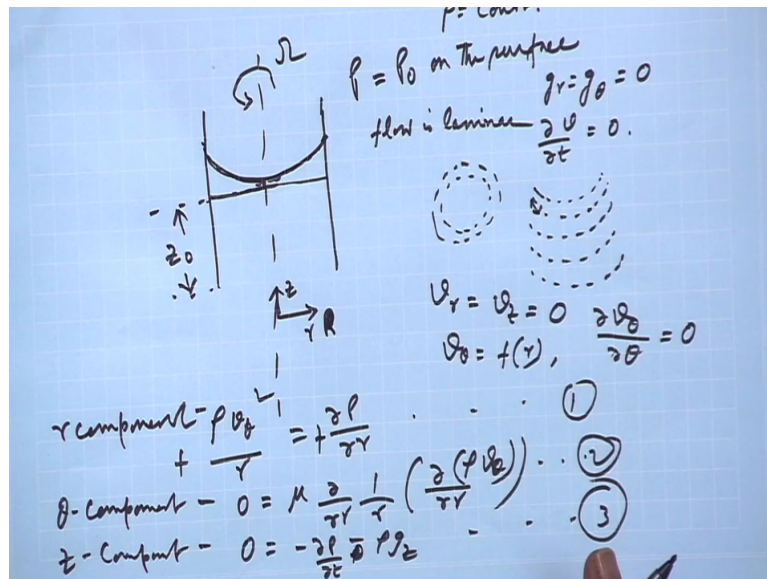 Ω
p = p₀ on the surface
g_r = g_θ = 0
flow is laminar ∂v/∂t = 0.
z₀
z
r R
v_r = v_z = 0 ∂v_θ/∂θ = 0
v_θ = f(r),
r component - + ρ v_θ/r = + ∂p/∂r . . . ①
θ-component - 0 = μ ∂/∂r 1/r (∂(r v_θ)/∂r) . . ②
z-compont - 0 = - ∂p/∂z ρg_z . . . ③